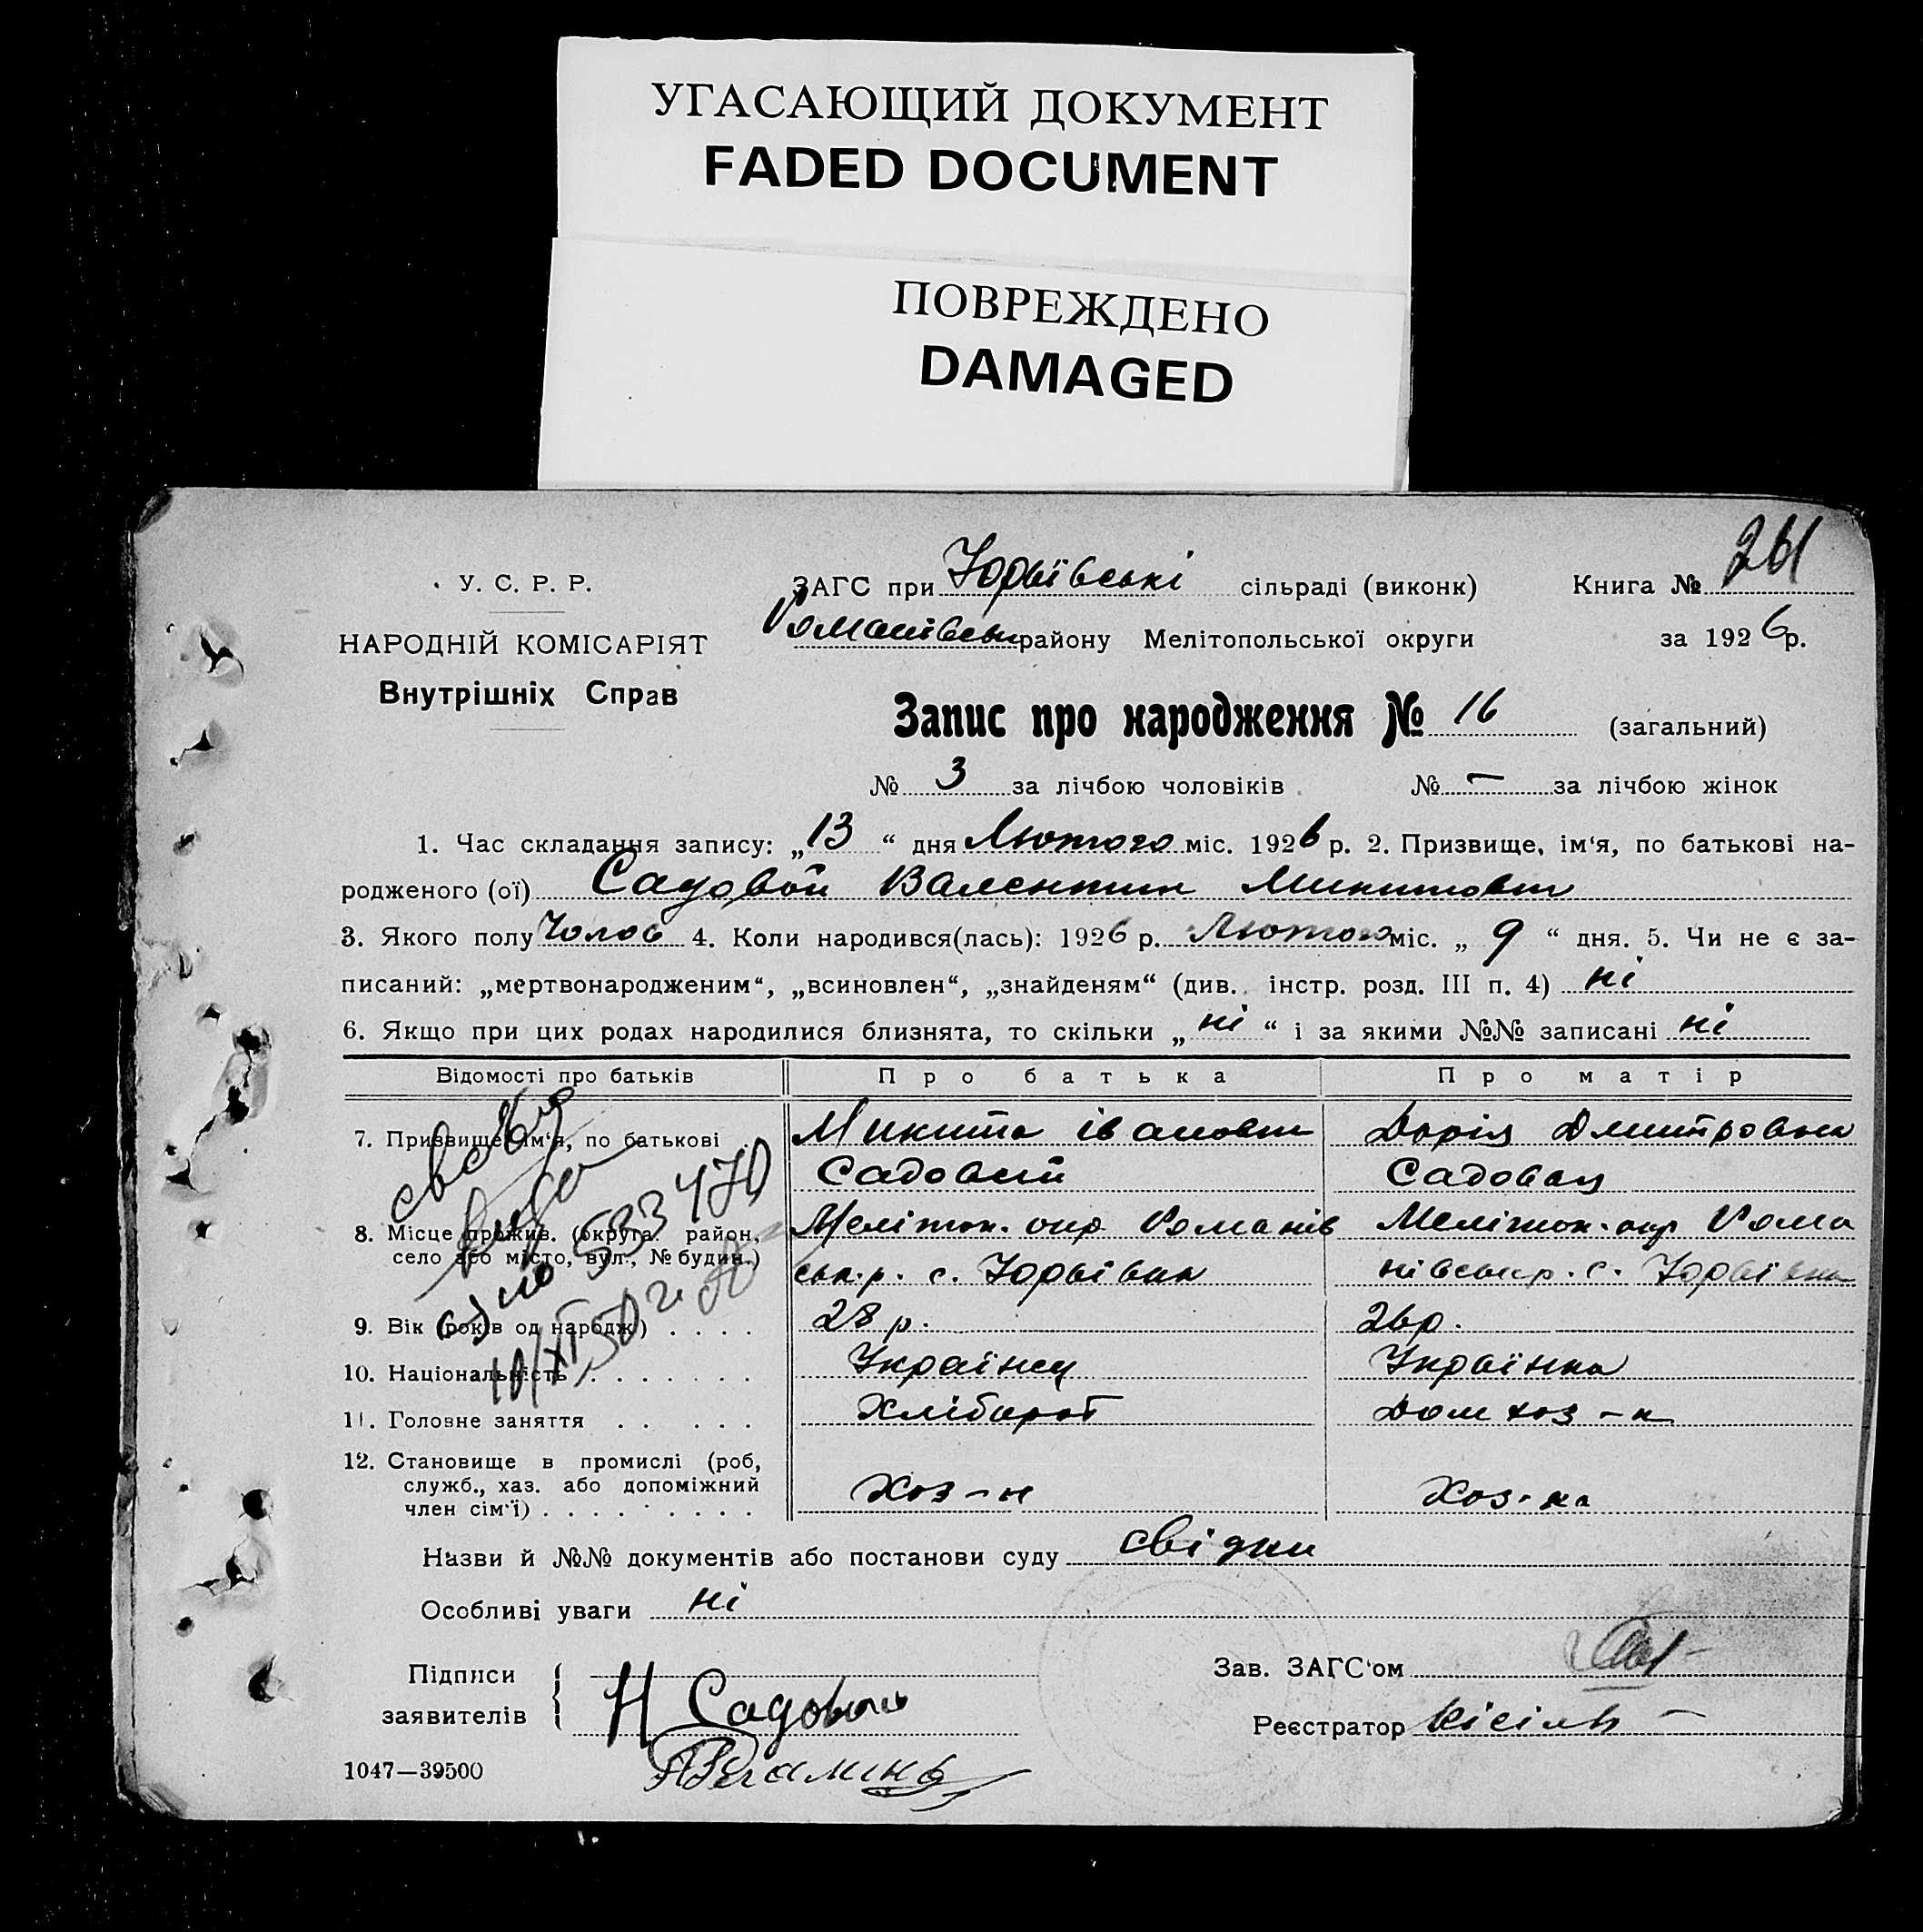 УГАСАЮЩИЙ ДОКУМЕНТ
FADED DOCUMENT
ПОВРЕЖДЕНО
DAMAGED
У. С. Р. Р.
НАРОДНІЙ КОМІСАРІЯТ
Внутрішніх Справ
ЗАГС при Юрьївські сільраді (виконк) Книга №
району Мелітопольської округи за 1926 р.
Запис про народження № 16 (загальний)
№ 3 за лічбою чоловіків № — за лічбою жінок
1. Час складання запису: „13“ дня Лютого міс. 1926 р. 2. Призвище, ім'я, по батькові на-
родженого (ої) Садовой Валентин Микитович
3. Якого полу Чолов 4. Коли народився(лась): 1926 р. Лютого міс. „9“ дня. 5. Чи не є за-
писаний: „мертвонародженим“, „всиновлен“, „знайденям“ (див. інстр. розд. III п. 4) ні
6. Якщо при цих родах народилися близнята, то скільки „ні“ і за якими №№ записані ні
Відомості про батьків Про батька Про матір
7. Призвище, ім'я, по батькові Микита Іванович Дарія Дмитровна
Садовий Садовая
8. Місце прожив. (округа. район, Меліточ. окр Романів Меліточ. окр Рома
село або місто, вул., № будин.) ськ. р. с. Юрьівка нівськ р. с. Юрьівка
533470
9. Вік (років од народж.) . . . . 28 р. 26 р.
10/XI 50 г.
10. Національність . . . . . . . Українец Українка
11. Головне заняття . . . . . Хлібороб Дом хоз-к
12. Становище в промислі (роб,
служб., хаз. або допоміжний Хоз-н Хоз-ка
член сім'ї) . . . . . . . .
Назви й №№ документів або постанови суду свідки
Особливі уваги ні
Підписи Зав. ЗАГС'ом
заявителів Н Садовой Реєстратор Кісіль
1047—39500